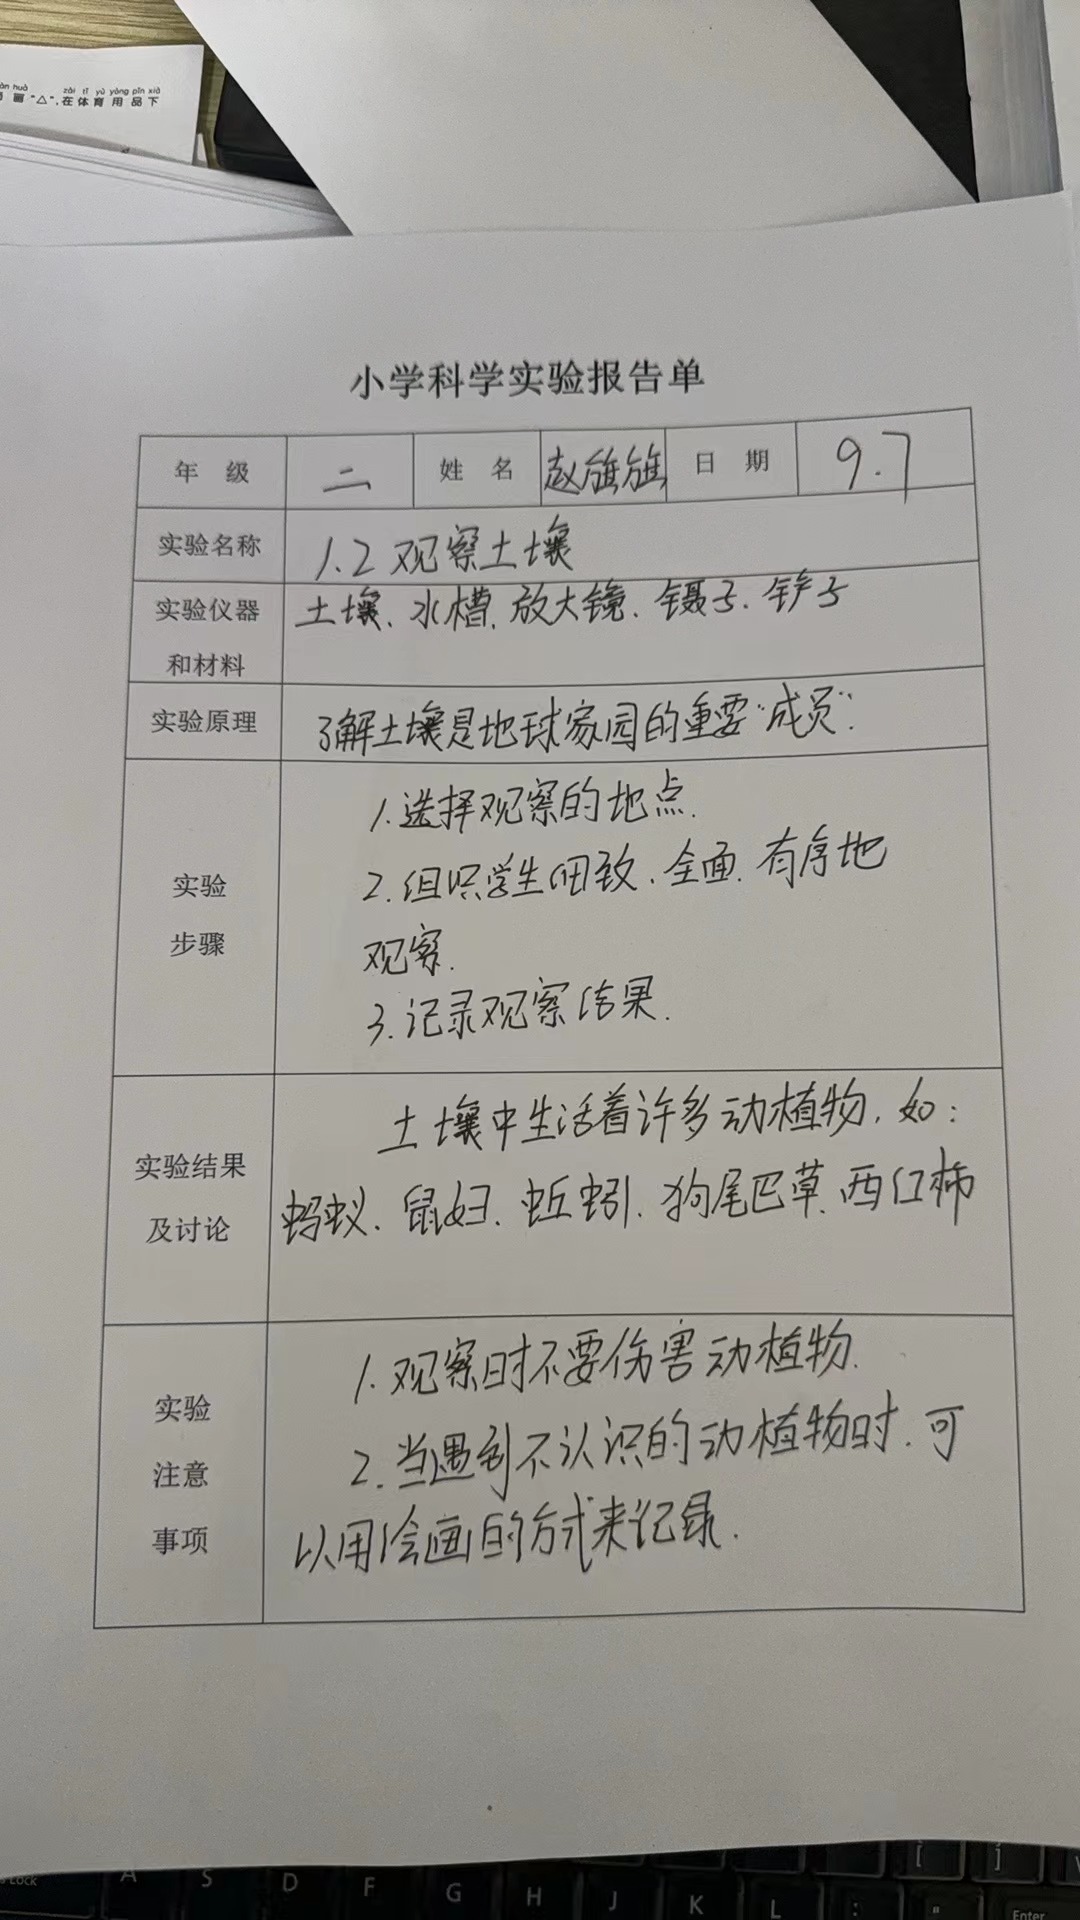 zài tǐ yù yòng pǐn xià
画"△",在体育用品下
小学科学实验报告单
年 级 二 姓 名 赵旗旗 日 期 9.7
实验名称 1.2 观察土壤
实验仪器和材料 土壤、水槽、放大镜、镊子、铲子
实验原理 了解土壤是地球家园的重要"成员".
实验步骤
1.选择观察的地点.
2.组织学生细致、全面、有序地
观察.
3.记录观察结果.
实验结果及讨论
土壤中生活着许多动植物,如:
蚂蚁、鼠妇、蚯蚓、狗尾巴草、西红柿
实验注意事项
1.观察时不要伤害动植物.
2.当遇到不认识的动植物时,可
以用绘画的方式来记录.
Lock A S D F G H J K L : " [ ] Enter